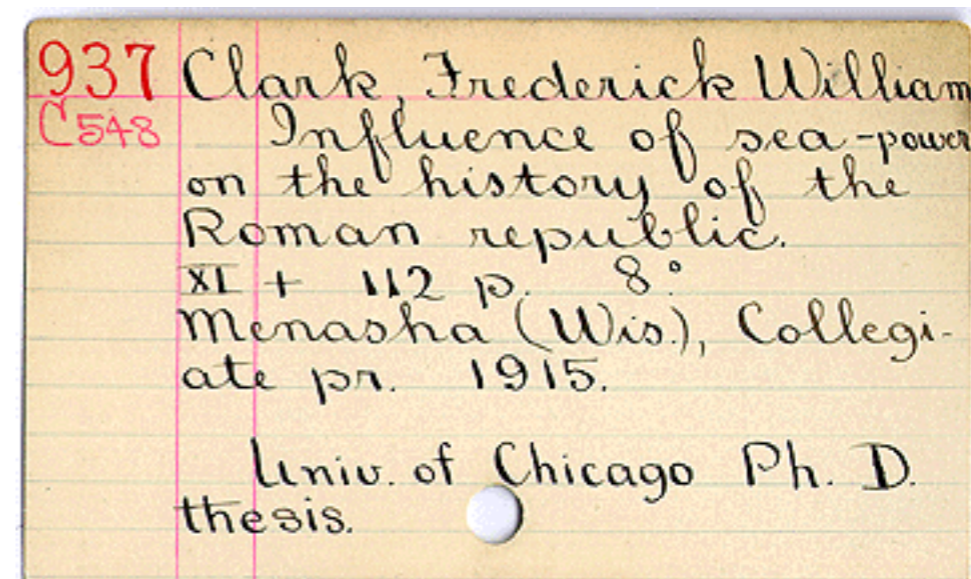 937 Clark, Frederick William
C548 Influence of sea-power
on the history of the
Roman republic.
XI + 112 p. 8°
Menasha (Wis.), Collegi-
ate pr. 1915.
Univ. of Chicago Ph. D.
thesis.